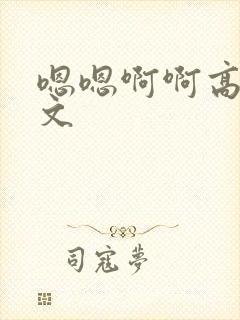 嗯嗯啊啊高
文
司寇夢